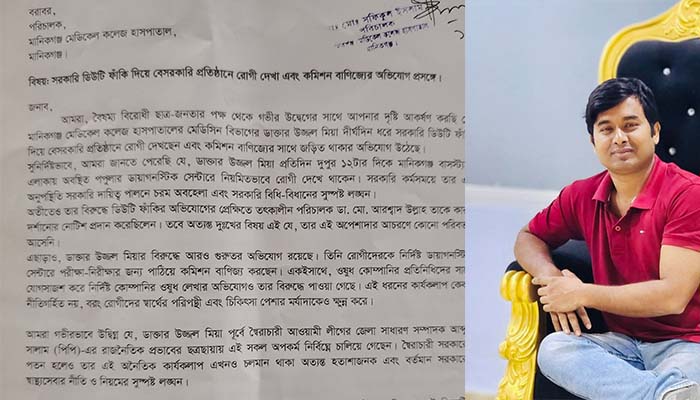 বরাবর,
পরিচালক,
মানিকগঞ্জ মেডিকেল কলেজ হাসপাতাল,
মানিকগঞ্জ।
মো: সফিকুল ইসলাম
পরিচালক
বিষয়: সরকারি ডিউটি ফাঁকি দিয়ে বেসরকারি প্রতিষ্ঠানে রোগী দেখা এবং কমিশন বাণিজ্যের অভিযোগ প্রসঙ্গে।
জনাব,
আমরা, বৈষম্য বিরোধী ছাত্র-জনতার পক্ষ থেকে গভীর উদ্বেগের সাথে আপনার দৃষ্টি আকর্ষণ করছি
মানিকগঞ্জ মেডিকেল কলেজ হাসপাতালের মেডিসিন বিভাগের ডাক্তার উজ্জল মিয়া দীর্ঘদিন ধরে সরকারি ডিউটি
দিয়ে বেসরকারি প্রতিষ্ঠানে রোগী দেখছেন এবং কমিশন বাণিজ্যের সাথে জড়িত থাকার অভিযোগ উঠেছে।
সুনির্দিষ্টভাবে, আমরা জানতে পেরেছি যে, ডাক্তার উজ্জল মিয়া প্রতিদিন দুপুর ১২টার দিকে মানিকগঞ্জ
এলাকায় অবস্থিত পপুলার ডায়াগনস্টিক সেন্টারে নিয়মিতভাবে রোগী দেখে থাকেন। সরকারি কর্মসময়ে তার
অনুপস্থিতি সরকারি দায়িত্ব পালনে চরম অবহেলা এবং সরকারি বিধি-বিধানের সুস্পষ্ট লঙ্ঘন।
অতীতেও তার বিরুদ্ধে ডিউটি ফাঁকির অভিযোগের প্রেক্ষিতে তৎকালীন পরিচালক ডা. মো. আরশ্বাদ উল্লাহ তাকে
দর্শানোর নোটিশ প্রদান করেছিলেন। তবে অত্যন্ত দুঃখের বিষয় এই যে, তার এই অপেশাদার আচরণে কোনো
আসেনি।
এছাড়াও, ডাক্তার উজ্জল মিয়ার বিরুদ্ধে আরও গুরুতর অভিযোগ রয়েছে। তিনি রোগীদেরকে নির্দিষ্ট
সেন্টারে পরীক্ষা-নিরীক্ষার জন্য পাঠিয়ে কমিশন বাণিজ্য করছেন। একইসাথে, ওষুধ কোম্পানির প্রতিনিধিদের
যোগসাজশ করে নির্দিষ্ট কোম্পানির ওষুধ লেখার অভিযোগও তার বিরুদ্ধে পাওয়া গেছে। এই ধরনের কার্যকলাপ
নীতিগর্হিত নয়, বরং রোগীদের স্বার্থের পরিপন্থী এবং চিকিৎসা পেশার মর্যাদাকেও ক্ষুন্ন করে।
আমরা গভীরভাবে উদ্বিগ্ন যে, ডাক্তার উজ্জল মিয়া পূর্বে স্বৈরাচারী আওয়ামী লীগের জেলা সাধারণ সম্পাদক
সালাম (পিপি)-এর রাজনৈতিক প্রভাবের ছত্রছায়ায় এই সকল অপকর্ম নির্বিঘ্নে চালিয়ে গেছেন। স্বৈরাচারী
পতন হলেও তার এই অনৈতিক কার্যকলাপ এখনও চলমান থাকা অত্যন্ত হতাশাজনক এবং বর্তমান
স্বাস্থ্যসেবার নীতি ও নিয়মের সুস্পষ্ট লঙ্ঘন।